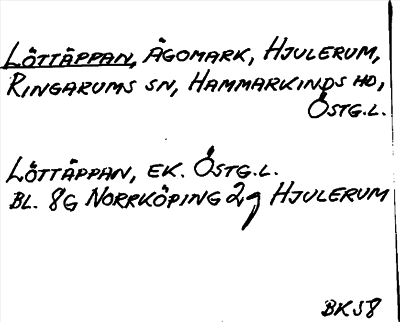 LÖTTÄPPAN, ÄGOMARK, HJULERUM,
RINGARUMS SN, HAMMARKINDS HD,
ÖSTG.L.
LÖTTÄPPAN, EK. ÖSTG.L.
BL. 8G NORRKÖPING 2g HJULERUM
BK58